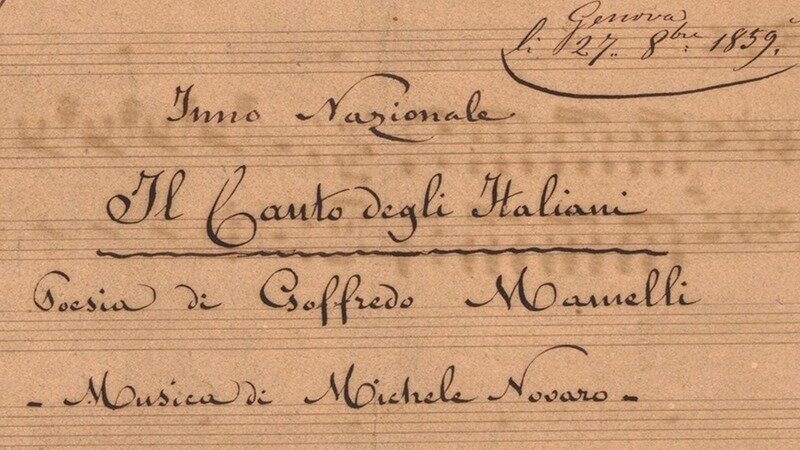 Genova
li 27.. 8bre 1859.
Inno Nazionale
Il Canto degli Italiani
Poesia di Goffredo Mamelli
- Musica di Michele Novaro -